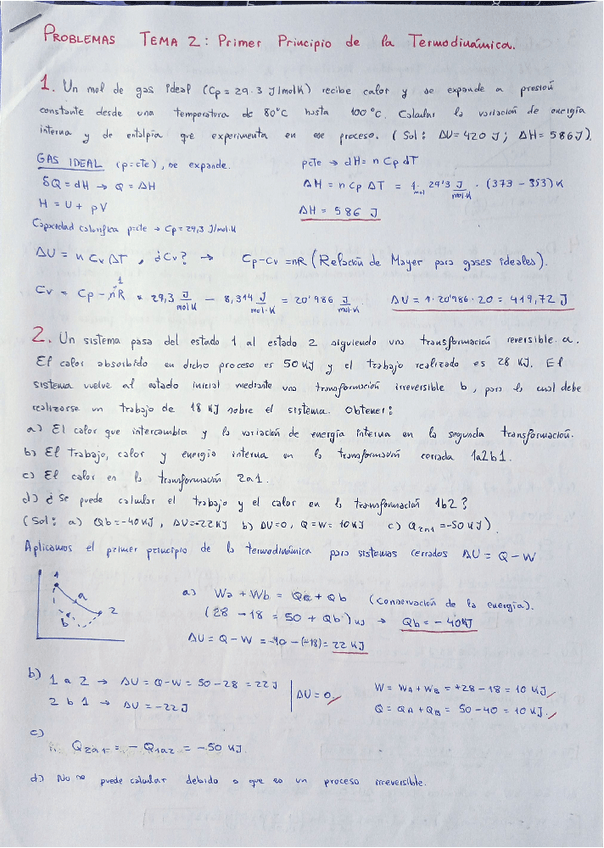 PROBLEMAS TEMA 2: Primer Principio de la Termodinámica.
1. Un mol de gas ideal (Cp = 29.3 J/molK) recibe calor y se expande a presión
constante desde una temperatura de 80°C hasta 100°C. Calcular la variación de energía
interna y de entalpía que experimenta en ese proceso. (Sol: ΔU=420 J; ΔH=586J).
GAS IDEAL (p=cte), se expande.
δQ = dH → Q = ΔH
H = U + pV
Capacidad calorífica p=cte → Cp = 29,3 J/mol·K
pcte → dH = n Cp dT
ΔH = n Cp ΔT = 1 mol · 29'3 J/mol·K · (373 - 353) K
ΔH = 586 J
ΔU = n Cv ΔT, ¿Cv? → Cp-Cv = nR (Relación de Mayer para gases ideales).
Cv = Cp - nR = 29,3 J/mol·K - 8,314 J/mol·K = 20'986 J/mol·K ΔU = 1·20'986·20 = 419,72 J
1
2. Un sistema pasa del estado 1 al estado 2 siguiendo una transformación reversible a.
El calor absorbido en dicho proceso es 50 KJ y el trabajo realizado es 28 KJ. El
sistema vuelve al estado inicial mediante una transformación irreversible b, para lo cual debe
realizarse un trabajo de 18 KJ sobre el sistema. Obtener:
a) El calor que intercambia y la variación de energía interna en la segunda transformación.
b) El trabajo, calor y energía interna en la transformación cerrada 1a2b1.
c) El calor en la transformación 2a1.
d) ¿Se puede calcular el trabajo y el calor en la transformación 1b2?
(Sol: a) Qb=-40KJ, ΔU=-22KJ b) ΔU=0, Q=W=10KJ c) Q2a1=-50KJ).
Aplicamos el primer principio de la termodinámica para sistemas cerrados ΔU = Q-W
1
a
2
b
a) Wa + Wb = Qa + Qb (conservación de la energía).
(28 - 18 = 50 + Qb) KJ → Qb = -40KJ
ΔU = Q-W = -40 - (-18) = 22 KJ
b) 1 a 2 → ΔU = Q-W = 50-28 = 22 J
2 b 1 → ΔU = -22 J
ΔU = 0
W = WA + WB = +28 - 18 = 10 KJ
Q = QA + QB = 50 - 40 = 10 KJ
c)
Q2a1 = - Q1a2 = -50 KJ
d) No se puede calcular debido a que es un proceso irreversible.